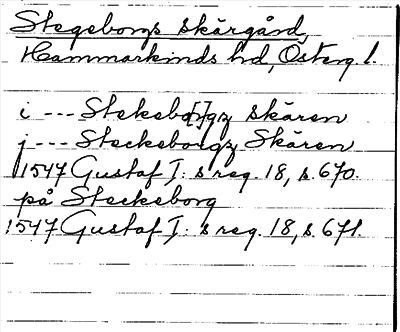 Stegeborgs skärgård,
Hammarkinds hd, Österg. l.
i --- Stekeborgz skären
j --- Steckeborgz Skären
1547 Gustaf I: s reg. 18, s. 670.
på Steckeborg
1547 Gustaf I: s reg. 18, s. 671.